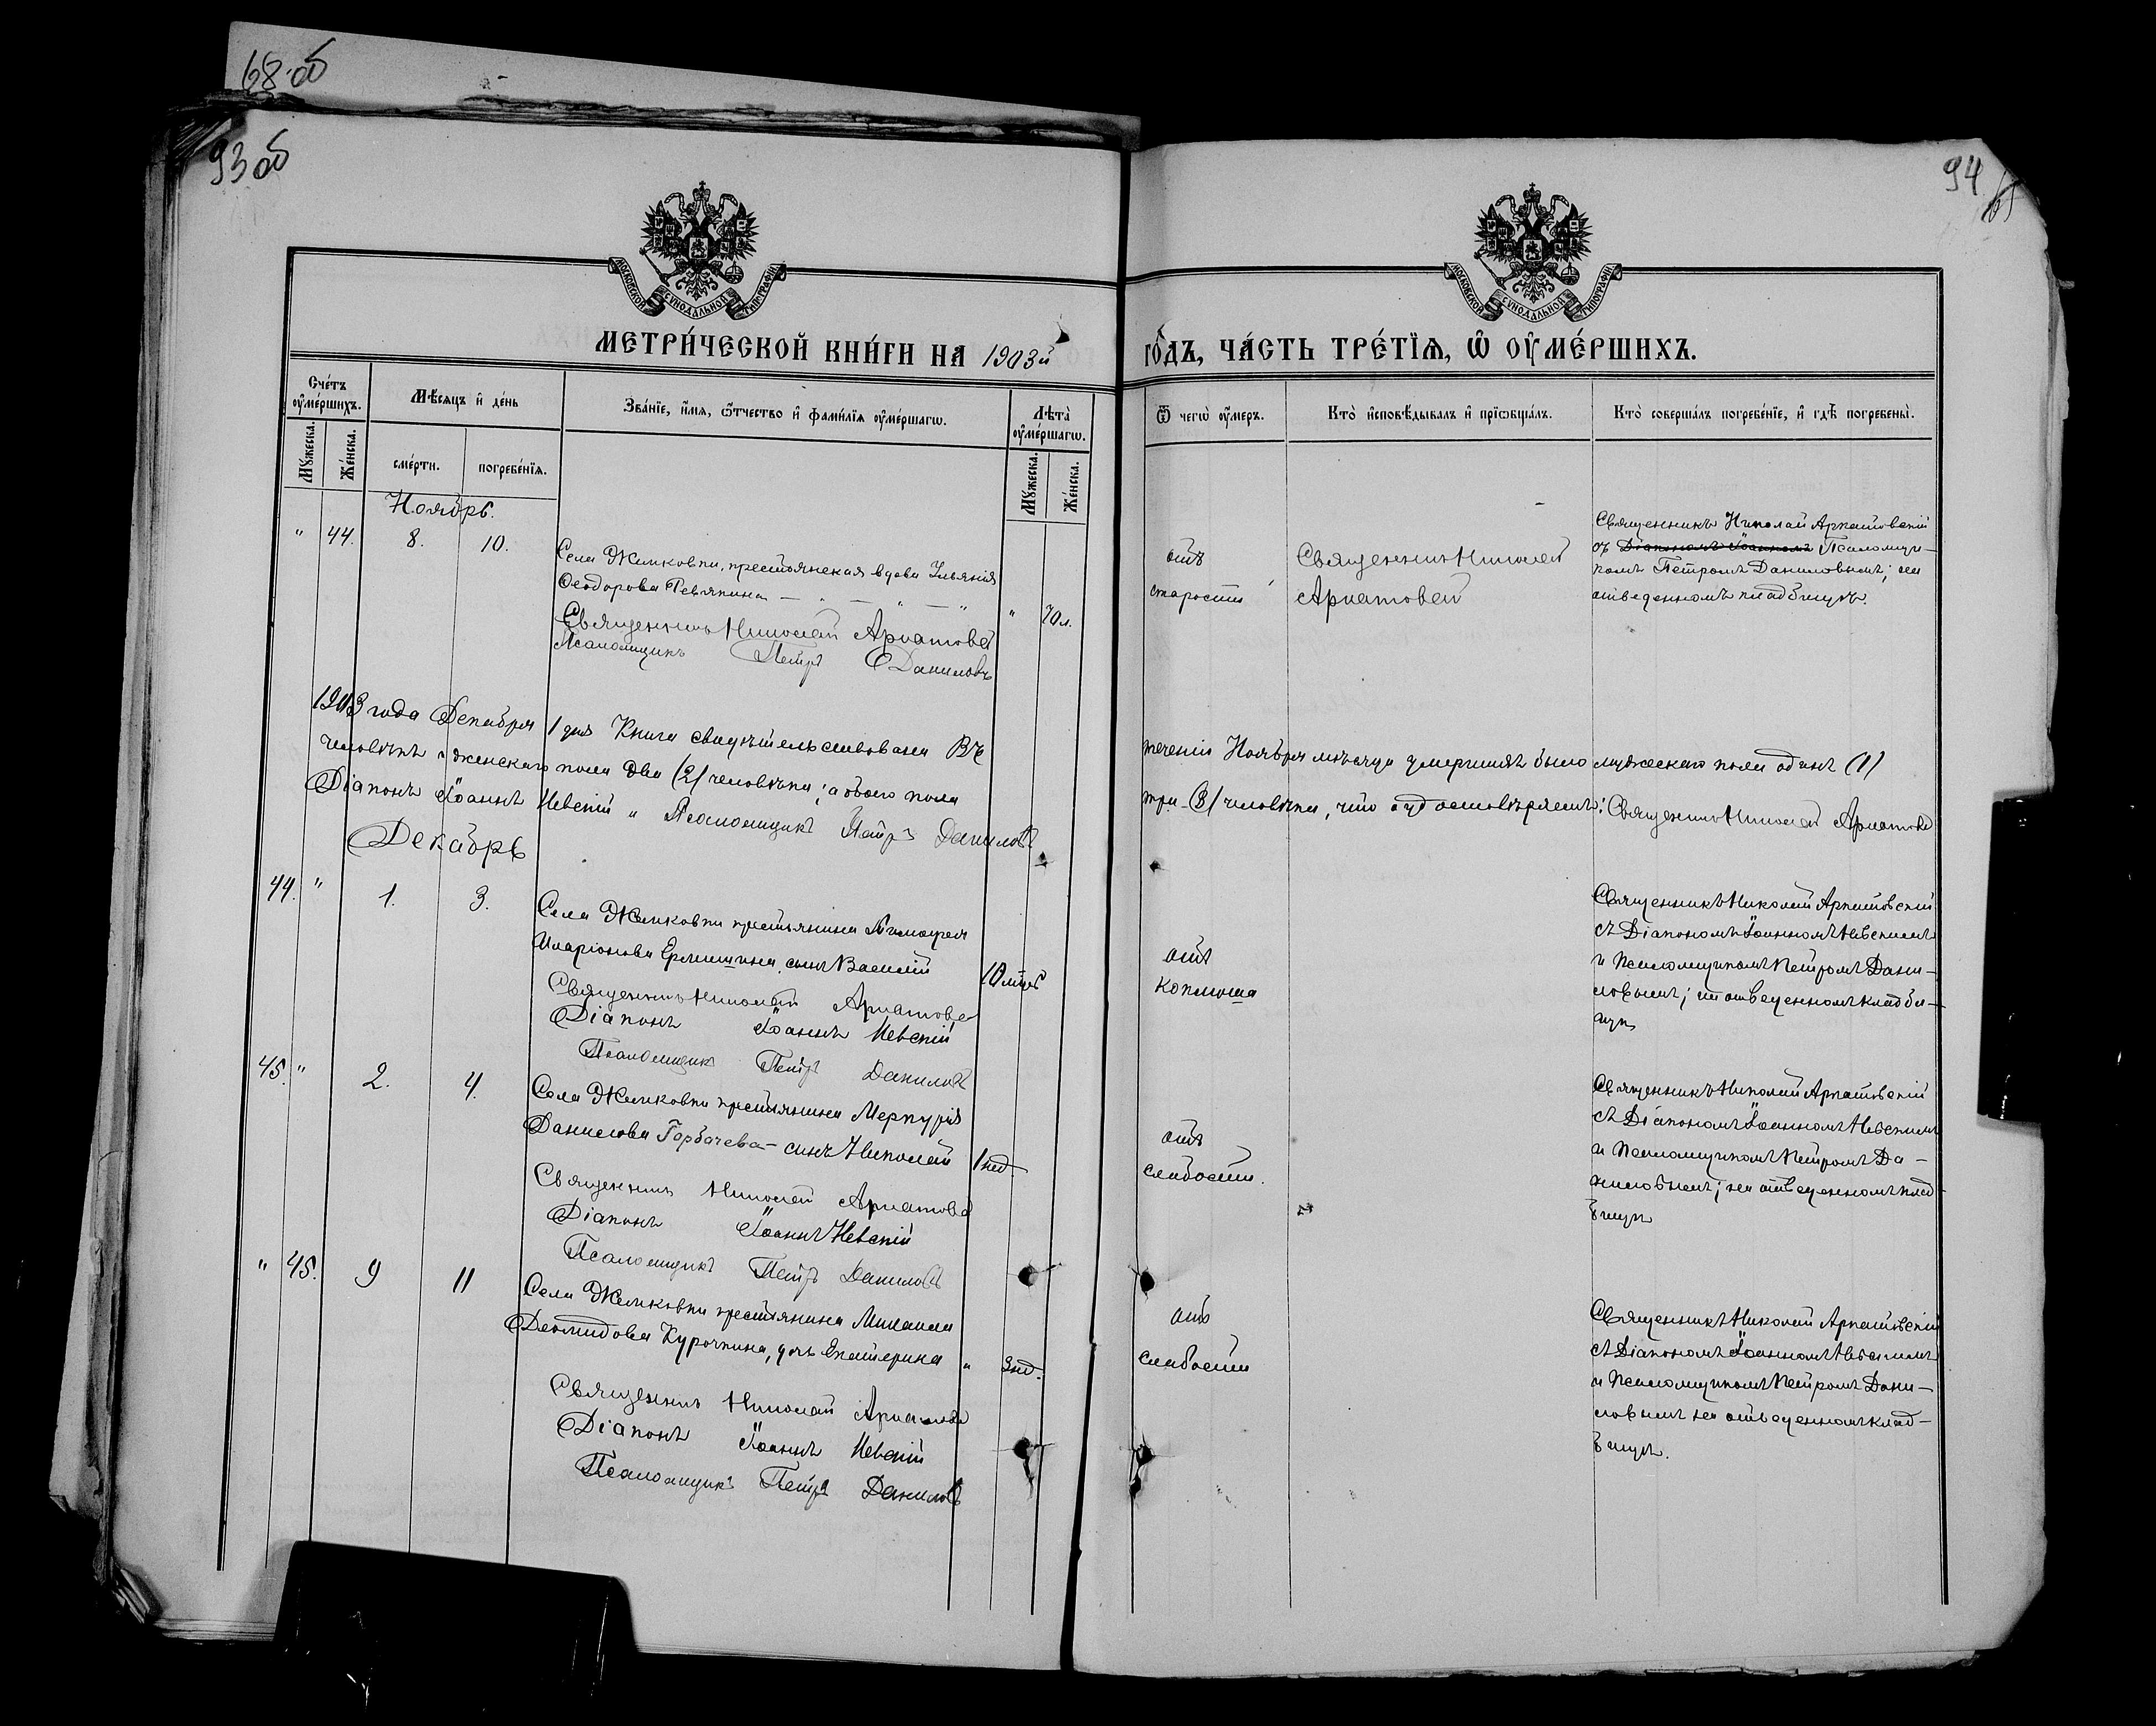 68 об
93 об
94
МОСКОВСКОЙ СѴНОДАЛЬНОЙ ТИПОГРАФІИ
МОСКОВСКОЙ СѴНОДАЛЬНОЙ ТИПОГРАФІИ
МЕТРИ́ЧЕСКОЙ КНИ́ГИ НА 1903й
ГО́ДЪ, ЧА́СТЬ ТРЕ́ТІѦ, Ѡ ОУМЕ́РШИХЪ.
Сче́тъ оуме́ршихъ.
Мѣ́сѧцъ и де́нь
Зва́нїе, и́мѧ, ѻ́тчество и фами́лїѧ оуме́ршагѡ.
Лѣта̀ оуме́ршагѡ.
Ѿ чегѡ̀ оу́меръ.
Кто̀ и҆сповѣ́дывалъ и прїѡбща́лъ.
Кто̀ соверша́лъ погребе́нїе, и гдѣ̀ погребены̀.
Мꙋ́жеска.
Же́нска.
сме́рти.
погребе́нїѧ.
Мꙋ́жеска.
Же́нска.
Ноябрь.
" 44. 8. 10.
Села Жемковки, крестьянская вдова Ульянія
Ѳеодорова Ревякина — " — " — "
" 70 л.
Священникъ Николай
Псаломщикъ Петръ Даниловъ
отъ
старости
Священникъ Николай
Священникъ Николай
съ Діакономъ Іоанномъ Псаломщи-
комъ Петромъ Даниловымъ; на
отведенномъ кладбищѣ.
1903 года Декабря 1 дня Книга свидѣтельствована Въ
теченіи Ноября мѣсяца умершихъ было мужескаго пола одинъ (1)
человѣкъ а женскаго пола два (2) человѣка; а обоего пола
три (3) человѣка, что и удостовѣряемъ: Священникъ Николай
Діаконъ Іоаннъ Невскій и Псаломщикъ Петръ Даниловъ
Декабрь
44. " 1. 3.
Села Жемковки крестьянина Тимофея
Иларіонова Ермишина, сынъ Василій
10 мѣс
Священникъ Николай
Діаконъ Іоаннъ Невскій
Псаломщикъ Петръ Даниловъ
отъ
коклюша
Священникъ Николай
съ Діакономъ Іоанномъ Невскимъ
и Псаломщикомъ Петромъ Дани-
ловымъ; на отведенномъ кладби-
щѣ
45. " 2. 4.
Села Жемковки крестьянина Меркурія
Данилова Горбачева — сынъ Николай
1 нед
Священникъ Николай
Діаконъ Іоаннъ Невскій
Псаломщикъ Петръ Даниловъ
отъ
слабости.
Священникъ Николай
съ Діакономъ Іоанномъ Невскимъ
и Псаломщикомъ Петромъ Да-
ниловымъ; на отведенномъ клад-
бищѣ
" 45. 9 11
Села Жемковки крестьянина Михаила
Деомидова Курочкина, дочь Екатерина
" 3 нед.
Священникъ Николай
Діаконъ Іоаннъ Невскій
Псаломщикъ Петръ Даниловъ
отъ
слабости
Священникъ Николай
съ Діакономъ Іоанномъ Невскимъ
и Псаломщикомъ Петромъ Дани-
ловымъ на отведенномъ клад-
бищѣ.